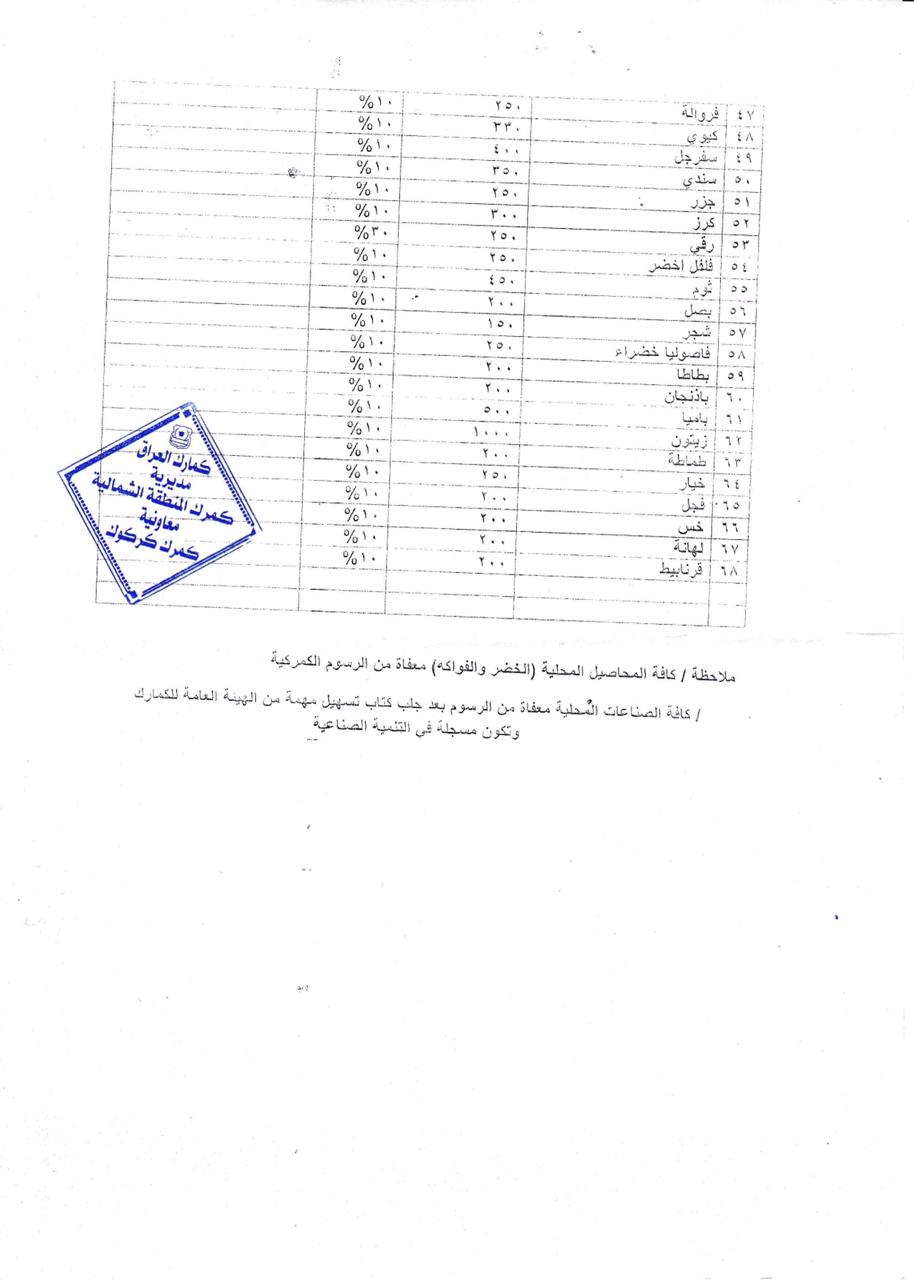 ٤٧ فروالة ٢٥٠ ١٠%
٤٨ كيوي ٣٣٠ ١٠%
٤٩ سفرجل ٤٠٠ ١٠%
٥٠ سندي ٣٥٠ ١٠%
٥١ جزر ٢٥٠ ١٠%
٥٢ كرز ٣٠٠ ١٠%
٥٣ رقي ٢٥٠ ٣٠%
٥٤ فلفل اخضر ٢٥٠ ١٠%
٥٥ ثوم ٤٥٠ ١٠%
٥٦ بصل ٢٠٠ ١٠%
٥٧ شجر ١٥٠ ١٠%
٥٨ فاصوليا خضراء ٢٥٠ ١٠%
٥٩ بطاطا ٢٠٠ ١٠%
٦٠ باذنجان ٢٠٠ ١٠%
٦١ باميا ٥٠٠ ١٠%
٦٢ زيتون ١٠٠٠ ١٠%
٦٣ طماطة ٢٠٠ ١٠%
٦٤ خيار ٢٥٠ ١٠%
٦٥ فجل ٢٠٠ ١٠%
٦٦ خس ٢٠٠ ١٠%
٦٧ لهانة ٢٠٠ ١٠%
٦٨ قرنابيط ٢٠٠ ١٠%
كمارك العراق
مديرية
كمرك المنطقة الشمالية
معاونية
كمرك كركوك
ملاحظة / كافة المحاصيل المحلية (الخضر والفواكه) معفاة من الرسوم الكمركية
/ كافة الصناعات المحلية معفاة من الرسوم بعد جلب كتاب تسهيل مهمة من الهيئة العامة للكمارك
وتكون مسجلة في التنمية الصناعية